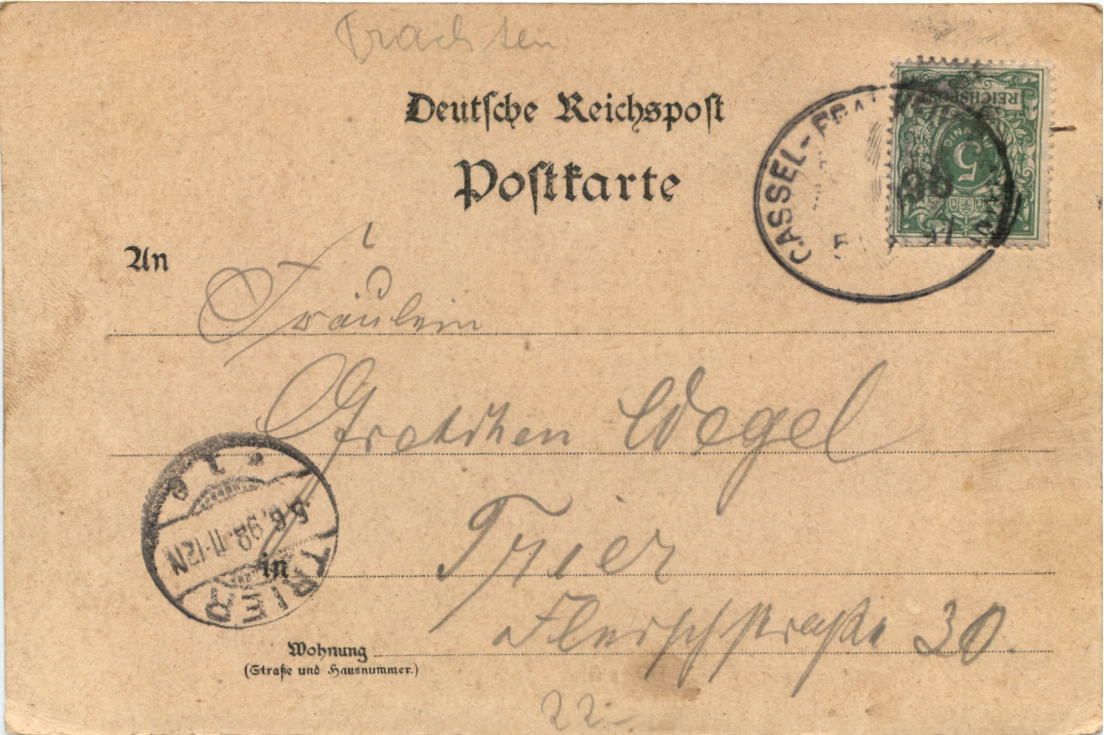 Trachten
Deutsche Reichspost
Postkarte
REICHSPOST
5
CASSEL-
An
Fräulein
Gretchen Wegel
Trier
in
TRIER
5.6.98.11-12N
Fleischstraße 30.
Wohnung
(Straße und Hausnummer.)
22.-